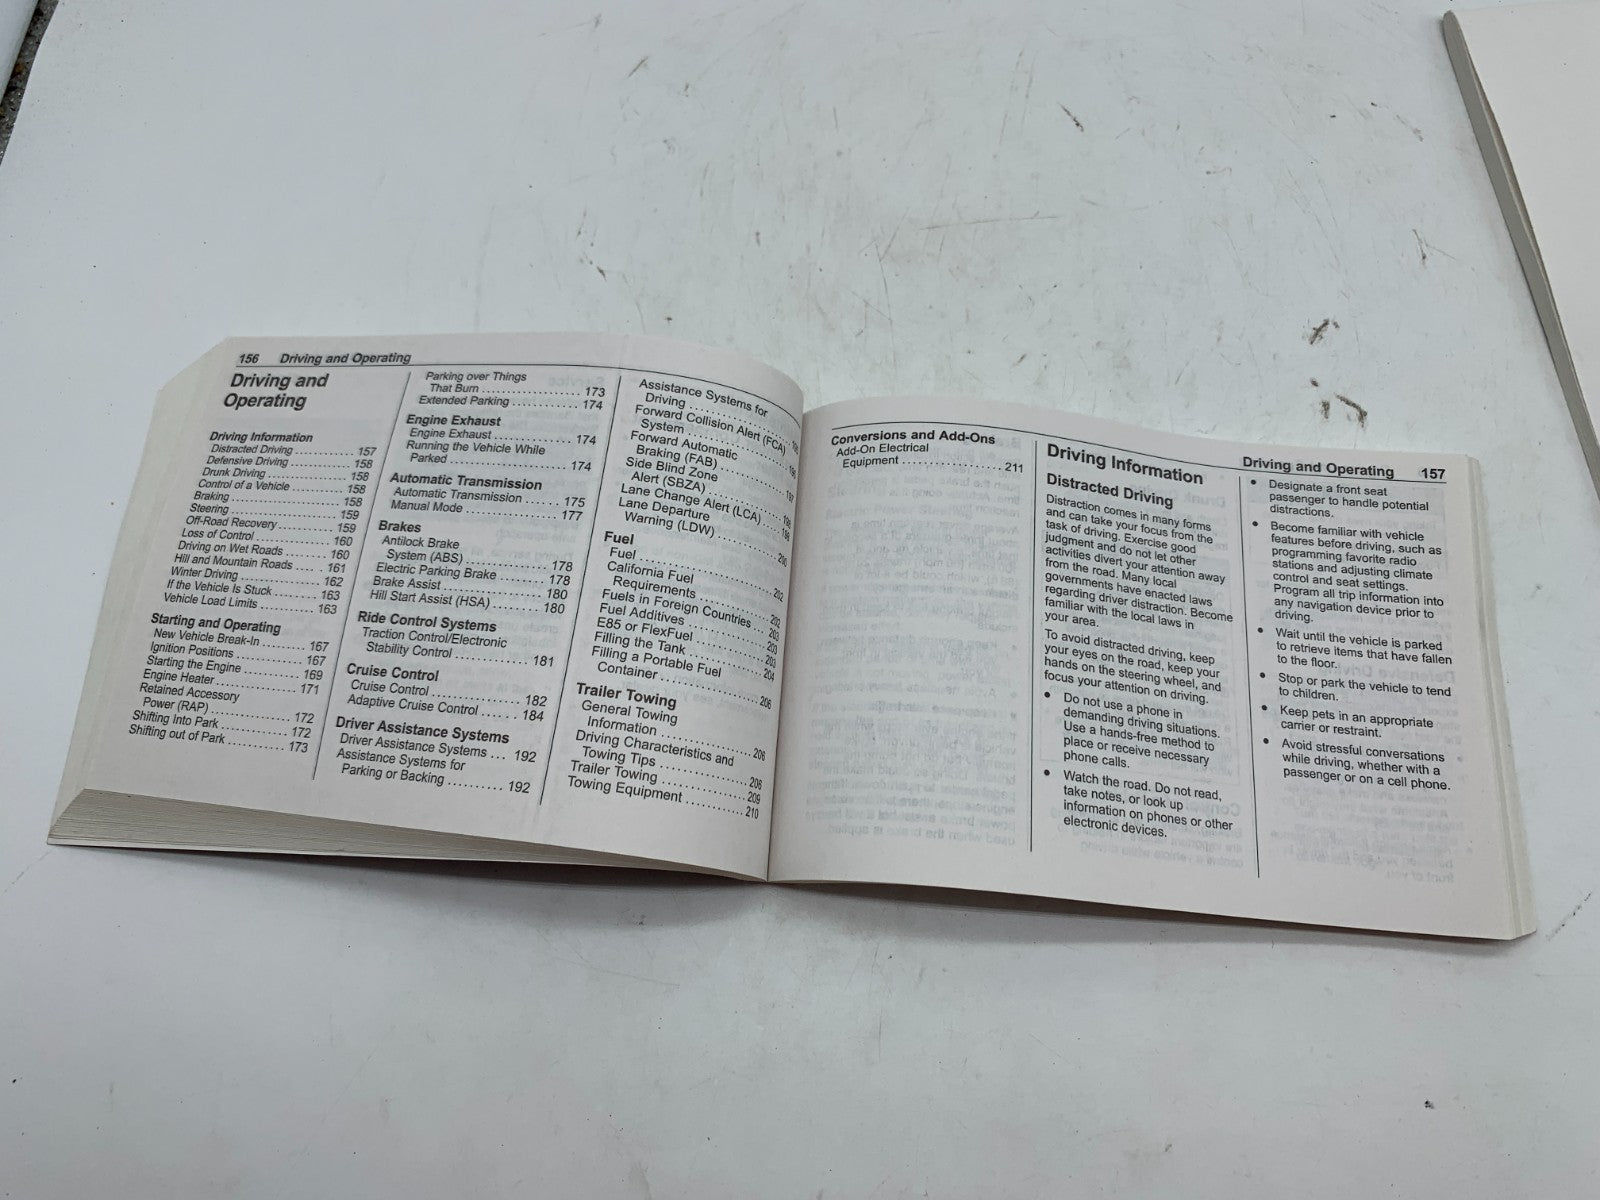 156 Driving and Operating
Driving and
Operating
Driving Information
Distracted Driving ............ 157
Defensive Driving ............ 158
Drunk Driving ............ 158
Control of a Vehicle ............ 158
Braking ............ 158
Steering ............ 159
Off-Road Recovery ............ 159
Loss of Control ............ 160
Driving on Wet Roads ............ 160
Hill and Mountain Roads ..... 161
Winter Driving ............ 162
If the Vehicle Is Stuck ........ 163
Vehicle Load Limits ............ 163
Starting and Operating
New Vehicle Break-In ........ 167
Ignition Positions ............ 167
Starting the Engine ............ 169
Engine Heater ............ 171
Retained Accessory
Power (RAP) ............ 172
Shifting Into Park ............ 172
Shifting out of Park ............ 173
Parking over Things
That Burn ............ 173
Extended Parking ............ 174
Engine Exhaust
Engine Exhaust ............ 174
Running the Vehicle While
Parked ............ 174
Automatic Transmission
Automatic Transmission ...... 175
Manual Mode ............ 177
Brakes
Antilock Brake
System (ABS) ............ 178
Electric Parking Brake ........ 178
Brake Assist ............ 180
Hill Start Assist (HSA) ........ 180
Ride Control Systems
Traction Control/Electronic
Stability Control ............ 181
Cruise Control
Cruise Control ............ 182
Adaptive Cruise Control ...... 184
Driver Assistance Systems
Driver Assistance Systems ... 192
Assistance Systems for
Parking or Backing ............ 192
Assistance Systems for
Driving ............
Forward Collision Alert (FCA)
System ............
Forward Automatic
Braking (FAB) ............
Side Blind Zone
Alert (SBZA) ............
Lane Change Alert (LCA) ....
Lane Departure
Warning (LDW) ............ 200
Fuel
Fuel ............ 202
California Fuel
Requirements ............ 202
Fuels in Foreign Countries ... 203
Fuel Additives ............ 203
E85 or FlexFuel ............ 203
Filling the Tank ............ 204
Filling a Portable Fuel
Container ............ 206
Trailer Towing
General Towing
Information ............ 206
Driving Characteristics and
Towing Tips ............ 206
Trailer Towing ............ 209
Towing Equipment ............ 210
Driving and Operating 157
Conversions and Add-Ons
Add-On Electrical
Equipment ............ 211
Driving Information
Distracted Driving
Distraction comes in many forms
and can take your focus from the
task of driving. Exercise good
judgment and do not let other
activities divert your attention away
from the road. Many local
governments have enacted laws
regarding driver distraction. Become
familiar with the local laws in
your area.
To avoid distracted driving, keep
your eyes on the road, keep your
hands on the steering wheel, and
focus your attention on driving.
• Do not use a phone in
demanding driving situations.
Use a hands-free method to
place or receive necessary
phone calls.
• Watch the road. Do not read,
take notes, or look up
information on phones or other
electronic devices.
• Designate a front seat
passenger to handle potential
distractions.
• Become familiar with vehicle
features before driving, such as
programming favorite radio
stations and adjusting climate
control and seat settings.
Program all trip information into
any navigation device prior to
driving.
• Wait until the vehicle is parked
to retrieve items that have fallen
to the floor.
• Stop or park the vehicle to tend
to children.
• Keep pets in an appropriate
carrier or restraint.
• Avoid stressful conversations
while driving, whether with a
passenger or on a cell phone.